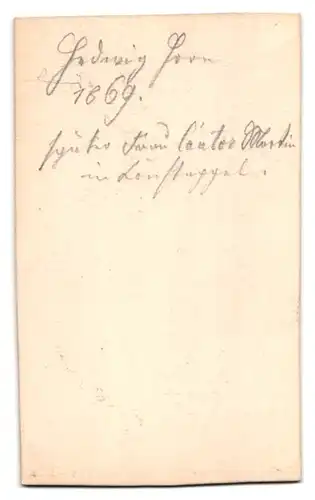 Hedwig Horn
1869.
später Frau Cantor Martin
in Konstappel.